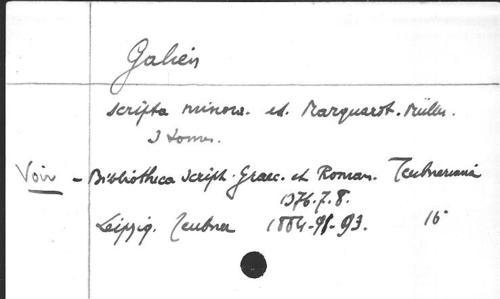 Galien
Scripta minora. ed. Marquardt. Müller.
3 tomes.
Voir - Bibliotheca Script. Graec. et Roman. Teubneriana
1376.7.8.
Leipzig. Teubner 1884-91-93. 16